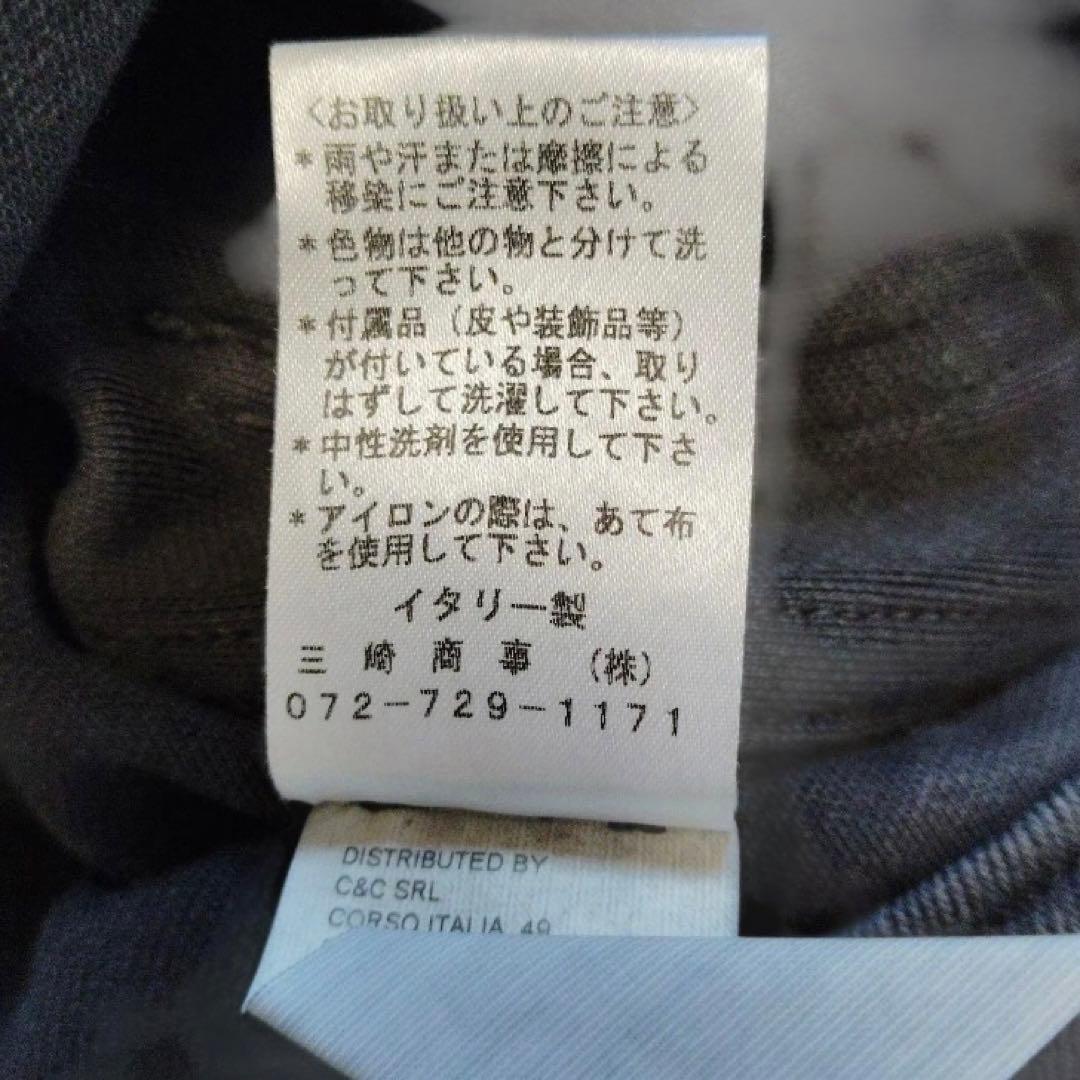 〈お取り扱い上のご注意〉
＊雨や汗または摩擦による
移染にご注意下さい。
＊色物は他の物と分けて洗
って下さい。
＊付属品（皮や装飾品等）
が付いている場合、取り
はずして洗濯して下さい。
＊中性洗剤を使用して下さ
い。
＊アイロンの際は、あて布
を使用して下さい。
イタリー製
三崎商事（株）
072-729-1171
DISTRIBUTED BY
C&C SRL
CORSO ITALIA, 49